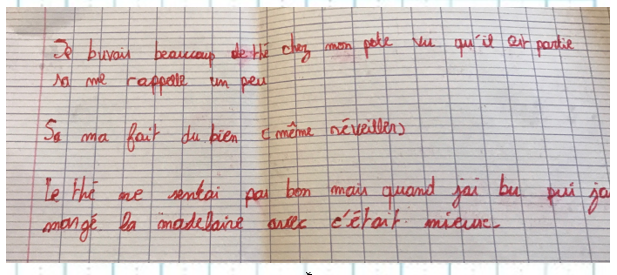 Je buvais beaucoup de thé chez mon pote vu qu'il est partie
sa me rappelle un peu
Sa ma fait du bien (même réveiller)
le thé me sentai pas bon mais quand jai bu pui ja
mangé la madelaine avec c'était mieux.